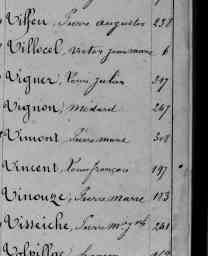 Viffen, Pierre auguste 238
Villocel, victor jean marie 6
Vigner, Louis julien 297
Vignon, médard 267
Vimont, Pierre marie 308
Vincent, Louis françois 197
Vinouze, Pierre marie 103
Visseiche, Pierre m. 261
Volpillac,